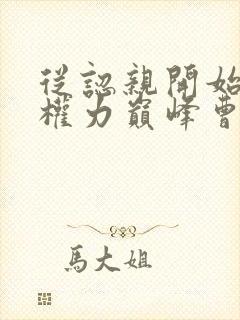 從認親開始
權力巔峰曹
馬大姐